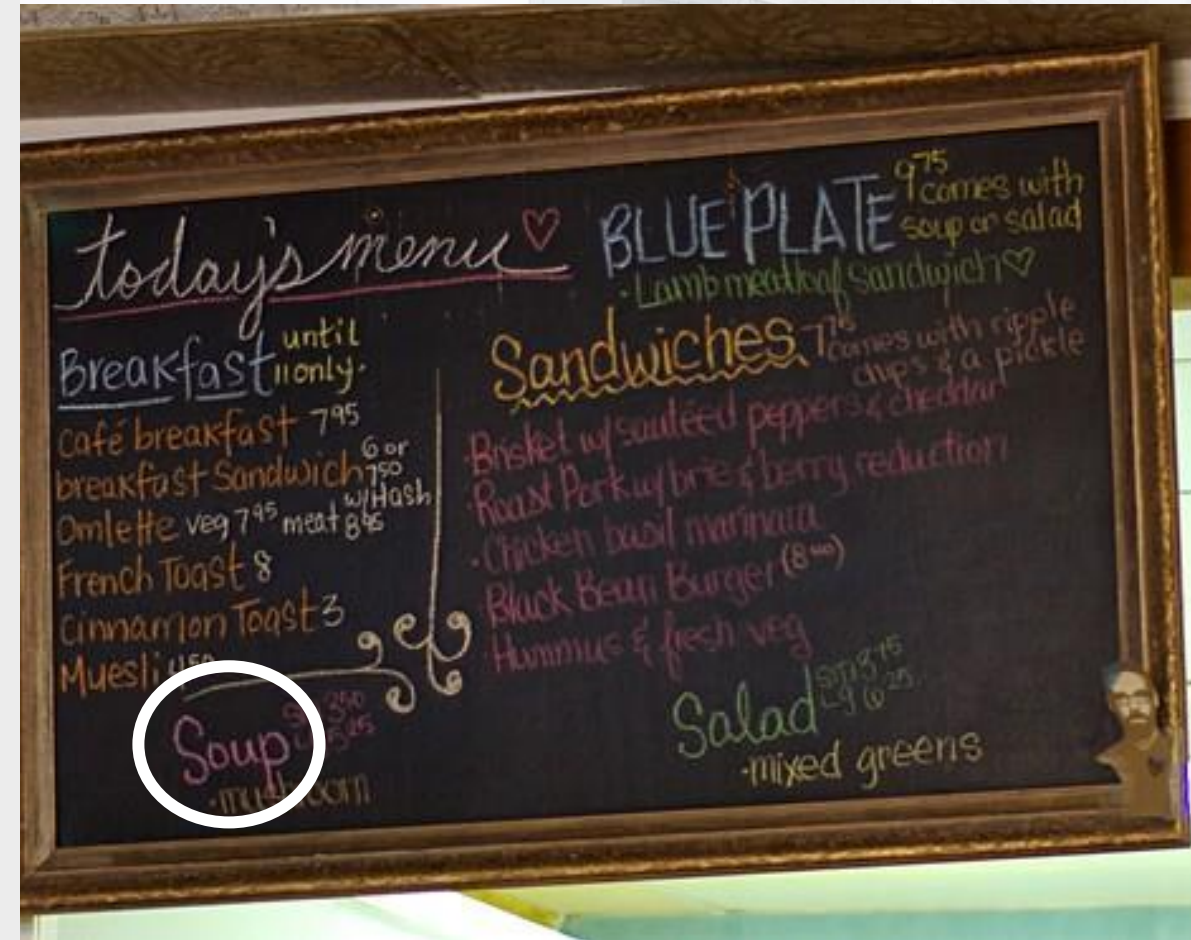 today's menu
Breakfast until
11 only.
café breakfast 7 95
breakfast Sandwich 6 or
7 50
w/Hash
Omlette veg 7 95 meat 8 95
French Toast 8
cinnamon Toast 3
Muesli 4 50
Soup 3 50
5 25
·mushroom
BLUE PLATE 9 75
comes with
soup or salad
·Lamb meatloaf sandwich
Sandwiches 7 75
comes with ripple
chips & a pickle
·Brisket w/ sautéed peppers & cheddar
·Roast Pork w/ brie & berry reduction
·Chicken basil marinara
·Black Bean Burger (8 00)
·Hummus & fresh veg
Salad 3 75
6 25
·mixed greens